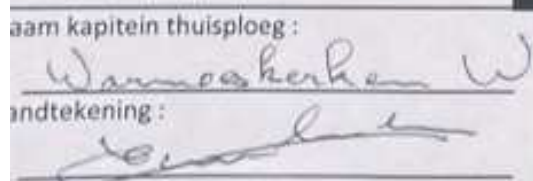 aam kapitein thuisploeg :
Warmoeskerken W
andtekening :